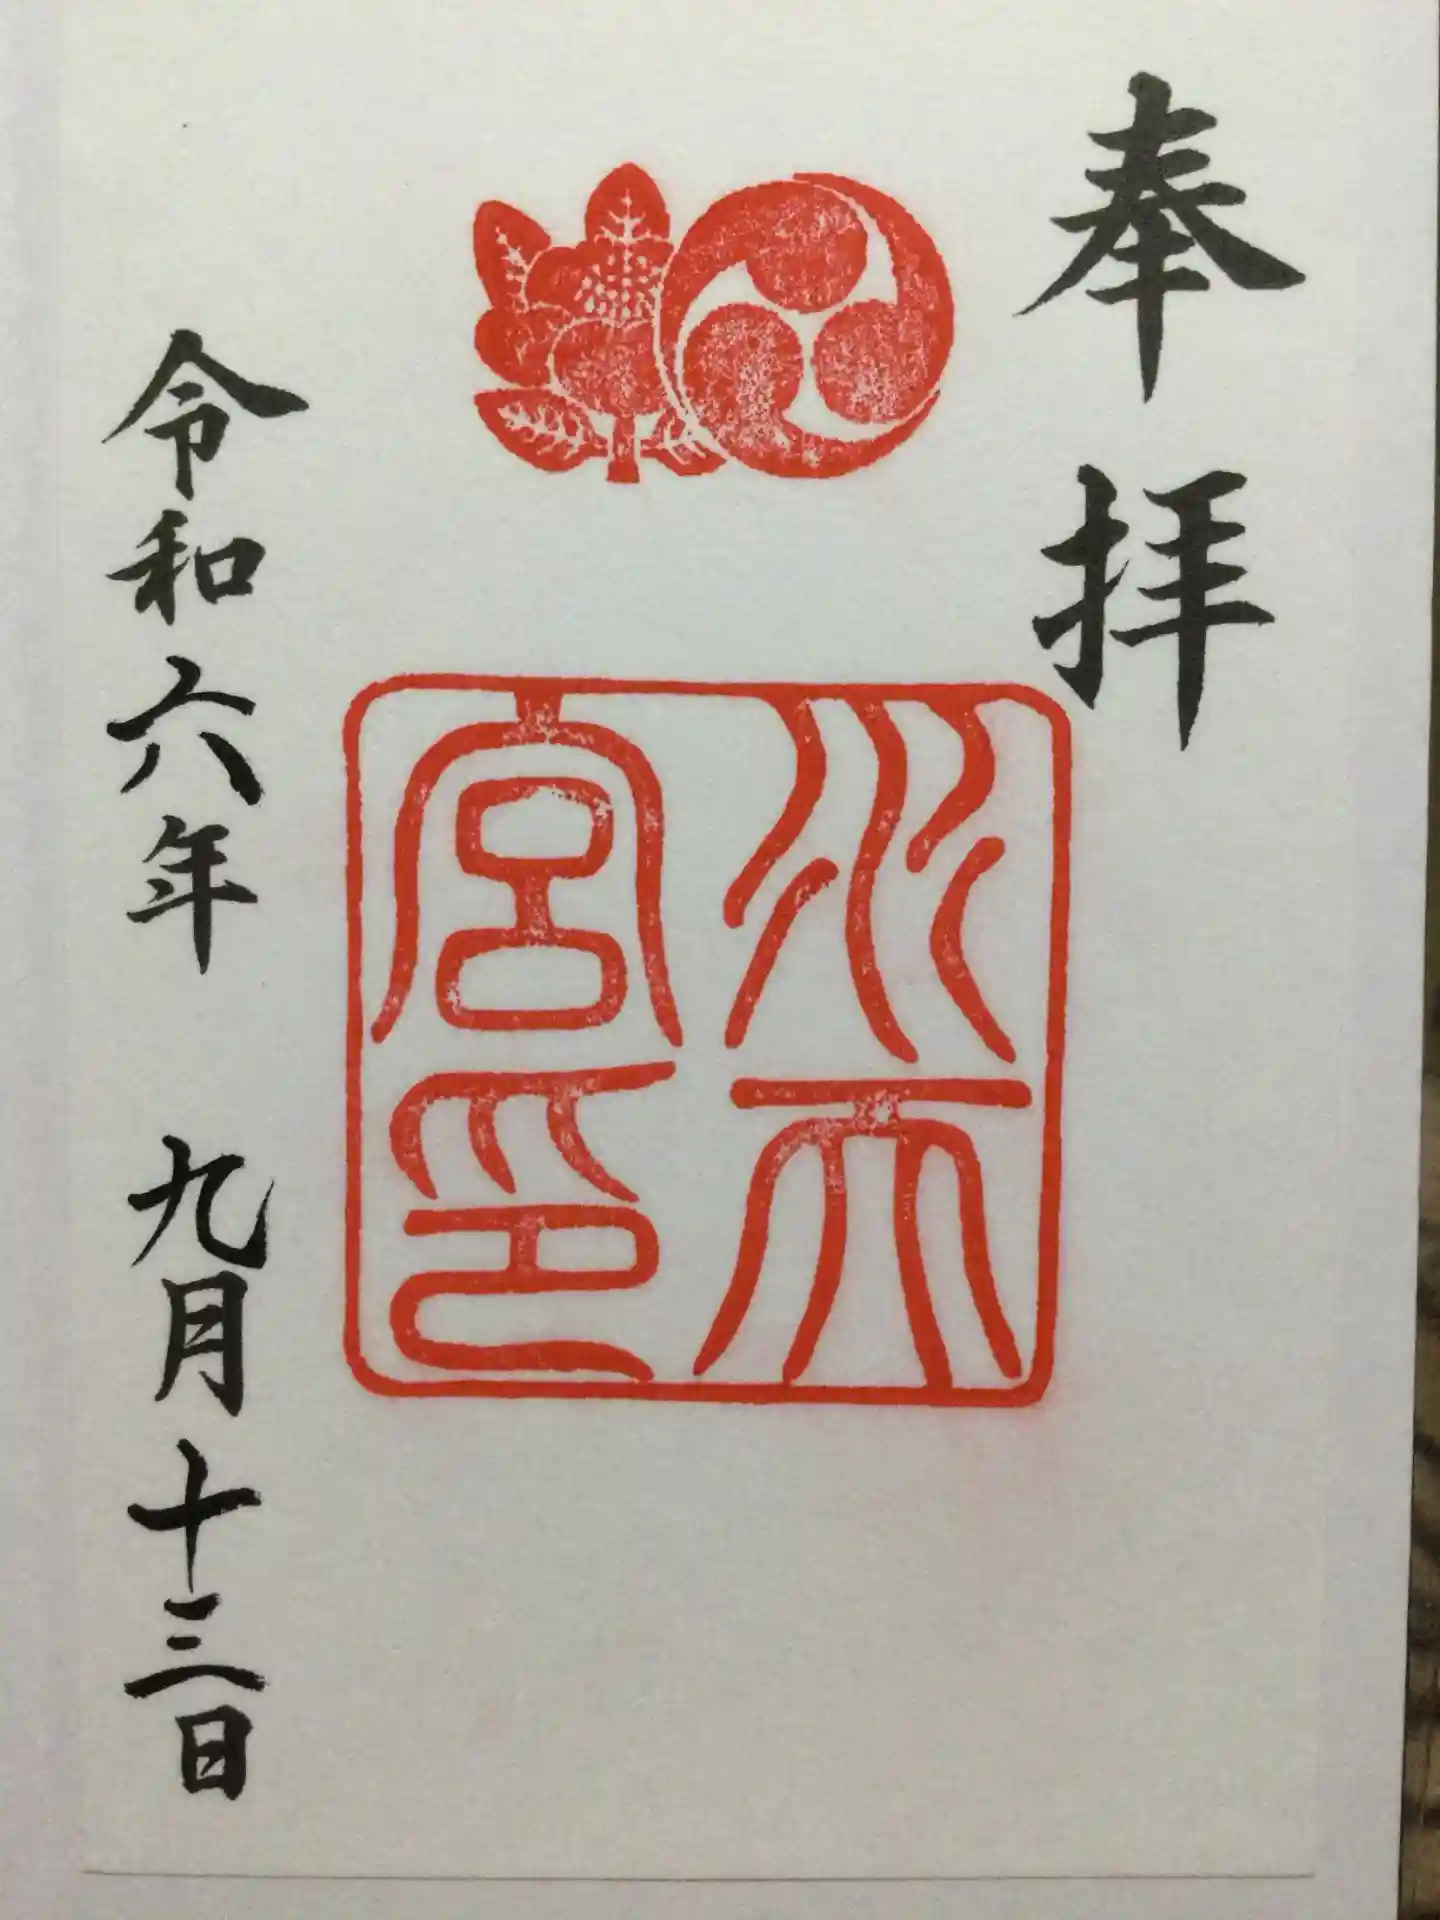 奉拝
水天
宮印
令和六年 九月十三日